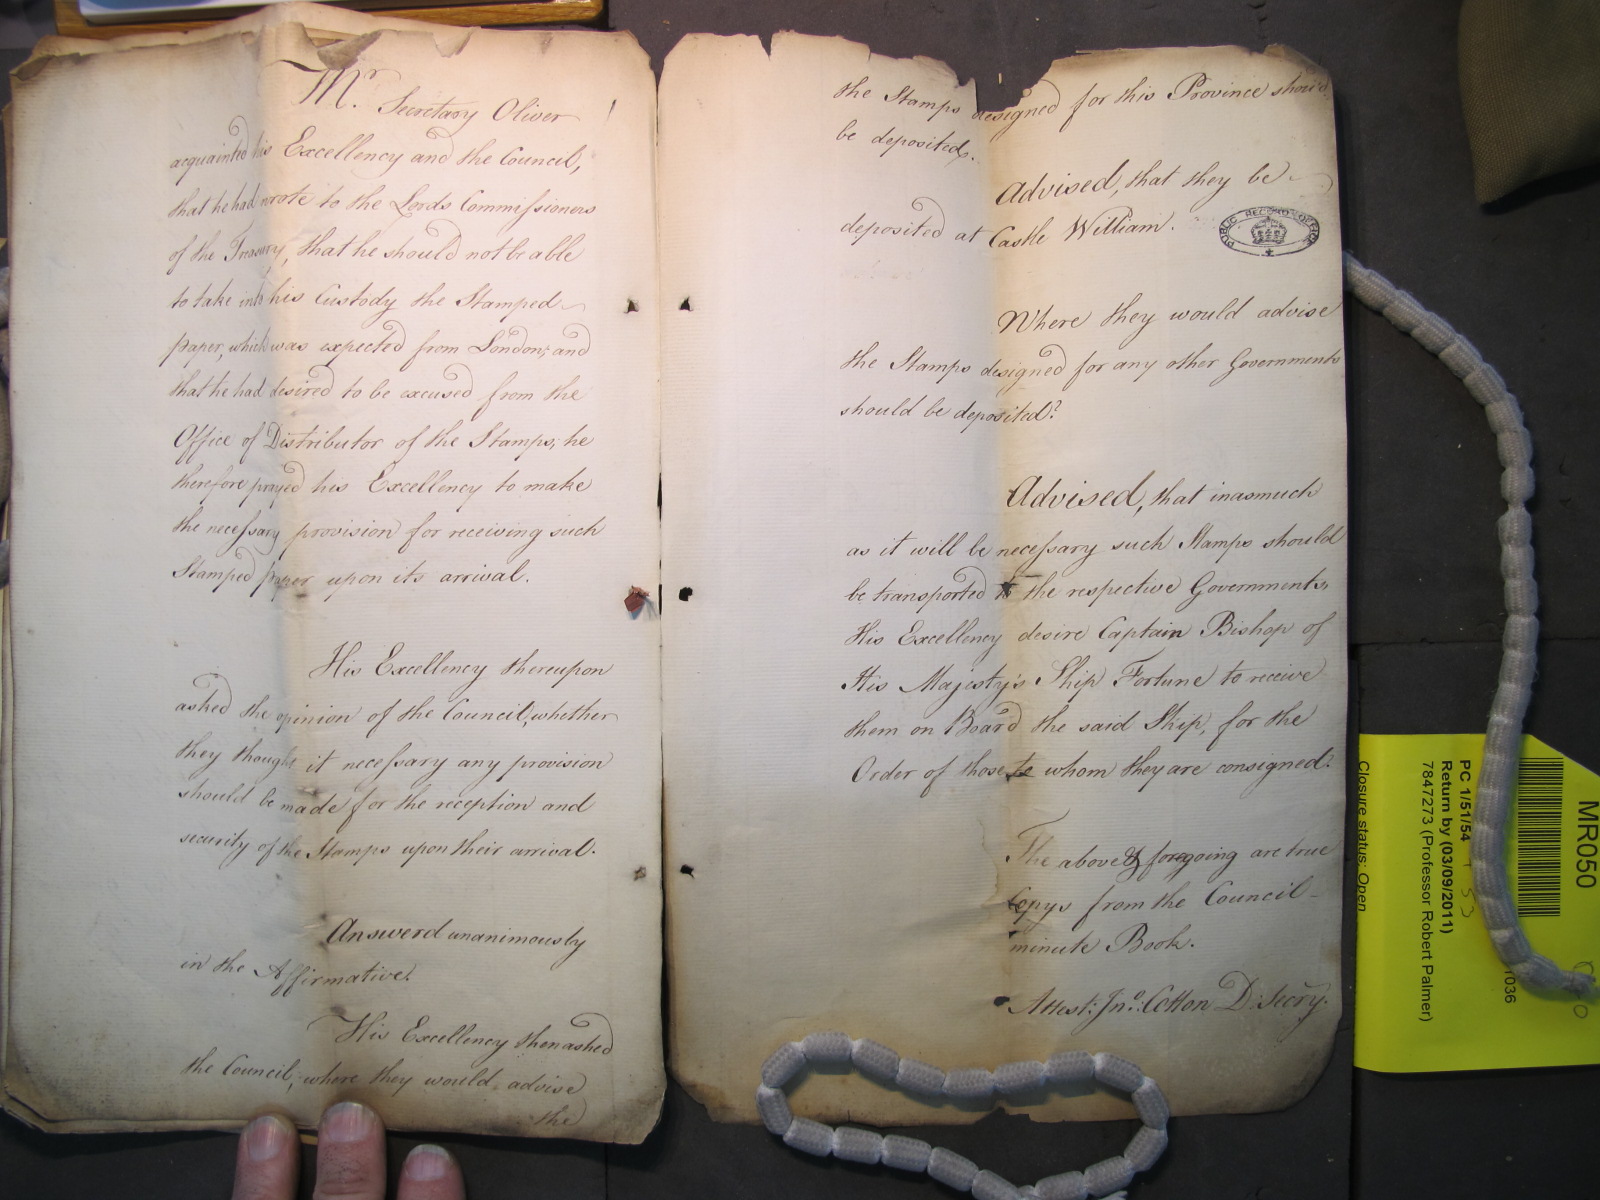 Mr. Secretary Oliver
acquainted his Excellency and the Council,
that he had wrote to the Lords Commissioners
of the Treasury, that he should not be able
to take into his Custody the Stamped
paper, which was expected from London; and
that he had desired to be excused from the
Office of Distributor of the Stamps; he
therefore prayed his Excellency to make
the necessary provision for receiving such
Stamped paper upon its arrival.
His Excellency thereupon
asked the opinion of the Council, whether
they thought it necessary any provision
should be made for the reception and
security of the Stamps upon their arrival.
Answerd unanimously
in the Affirmative.
His Excellency then asked
the Council, where they would advise
the
the Stamps designed for this Province should
be deposited.
Advised, that they be
deposited at Castle William.
PUBLIC RECORD OFFICE
Where they would advise
the Stamps designed for any other Governments
should be deposited?
Advised, that inasmuch
as it will be necessary such Stamps should
be transported to the respective Governments,
His Excellency desire Captain Bishop of
His Majesty's Ship Fortune to receive
them on Board the said Ship, for the
Order of those to whom they are consigned.
The above & foregoing are true
Copys from the Council
minute Book.
Attest: Jno. Cotton D. Secry.
MR050
PC 1/51/54
Return by (03/09/2011)
7847273 (Professor Robert Palmer)
Closure status: Open
1036
53